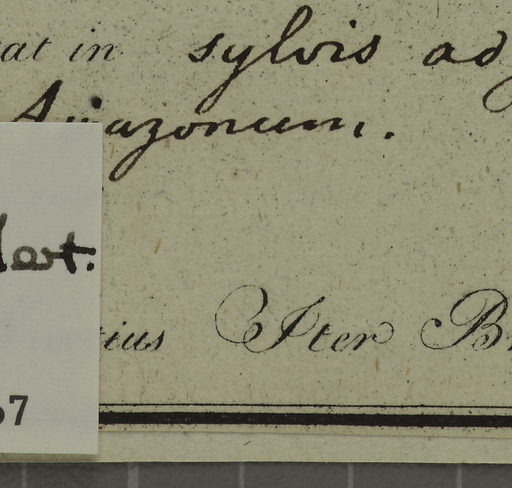 at in sylvis ad
Amazonum.
Mart.
tius Iter B
67